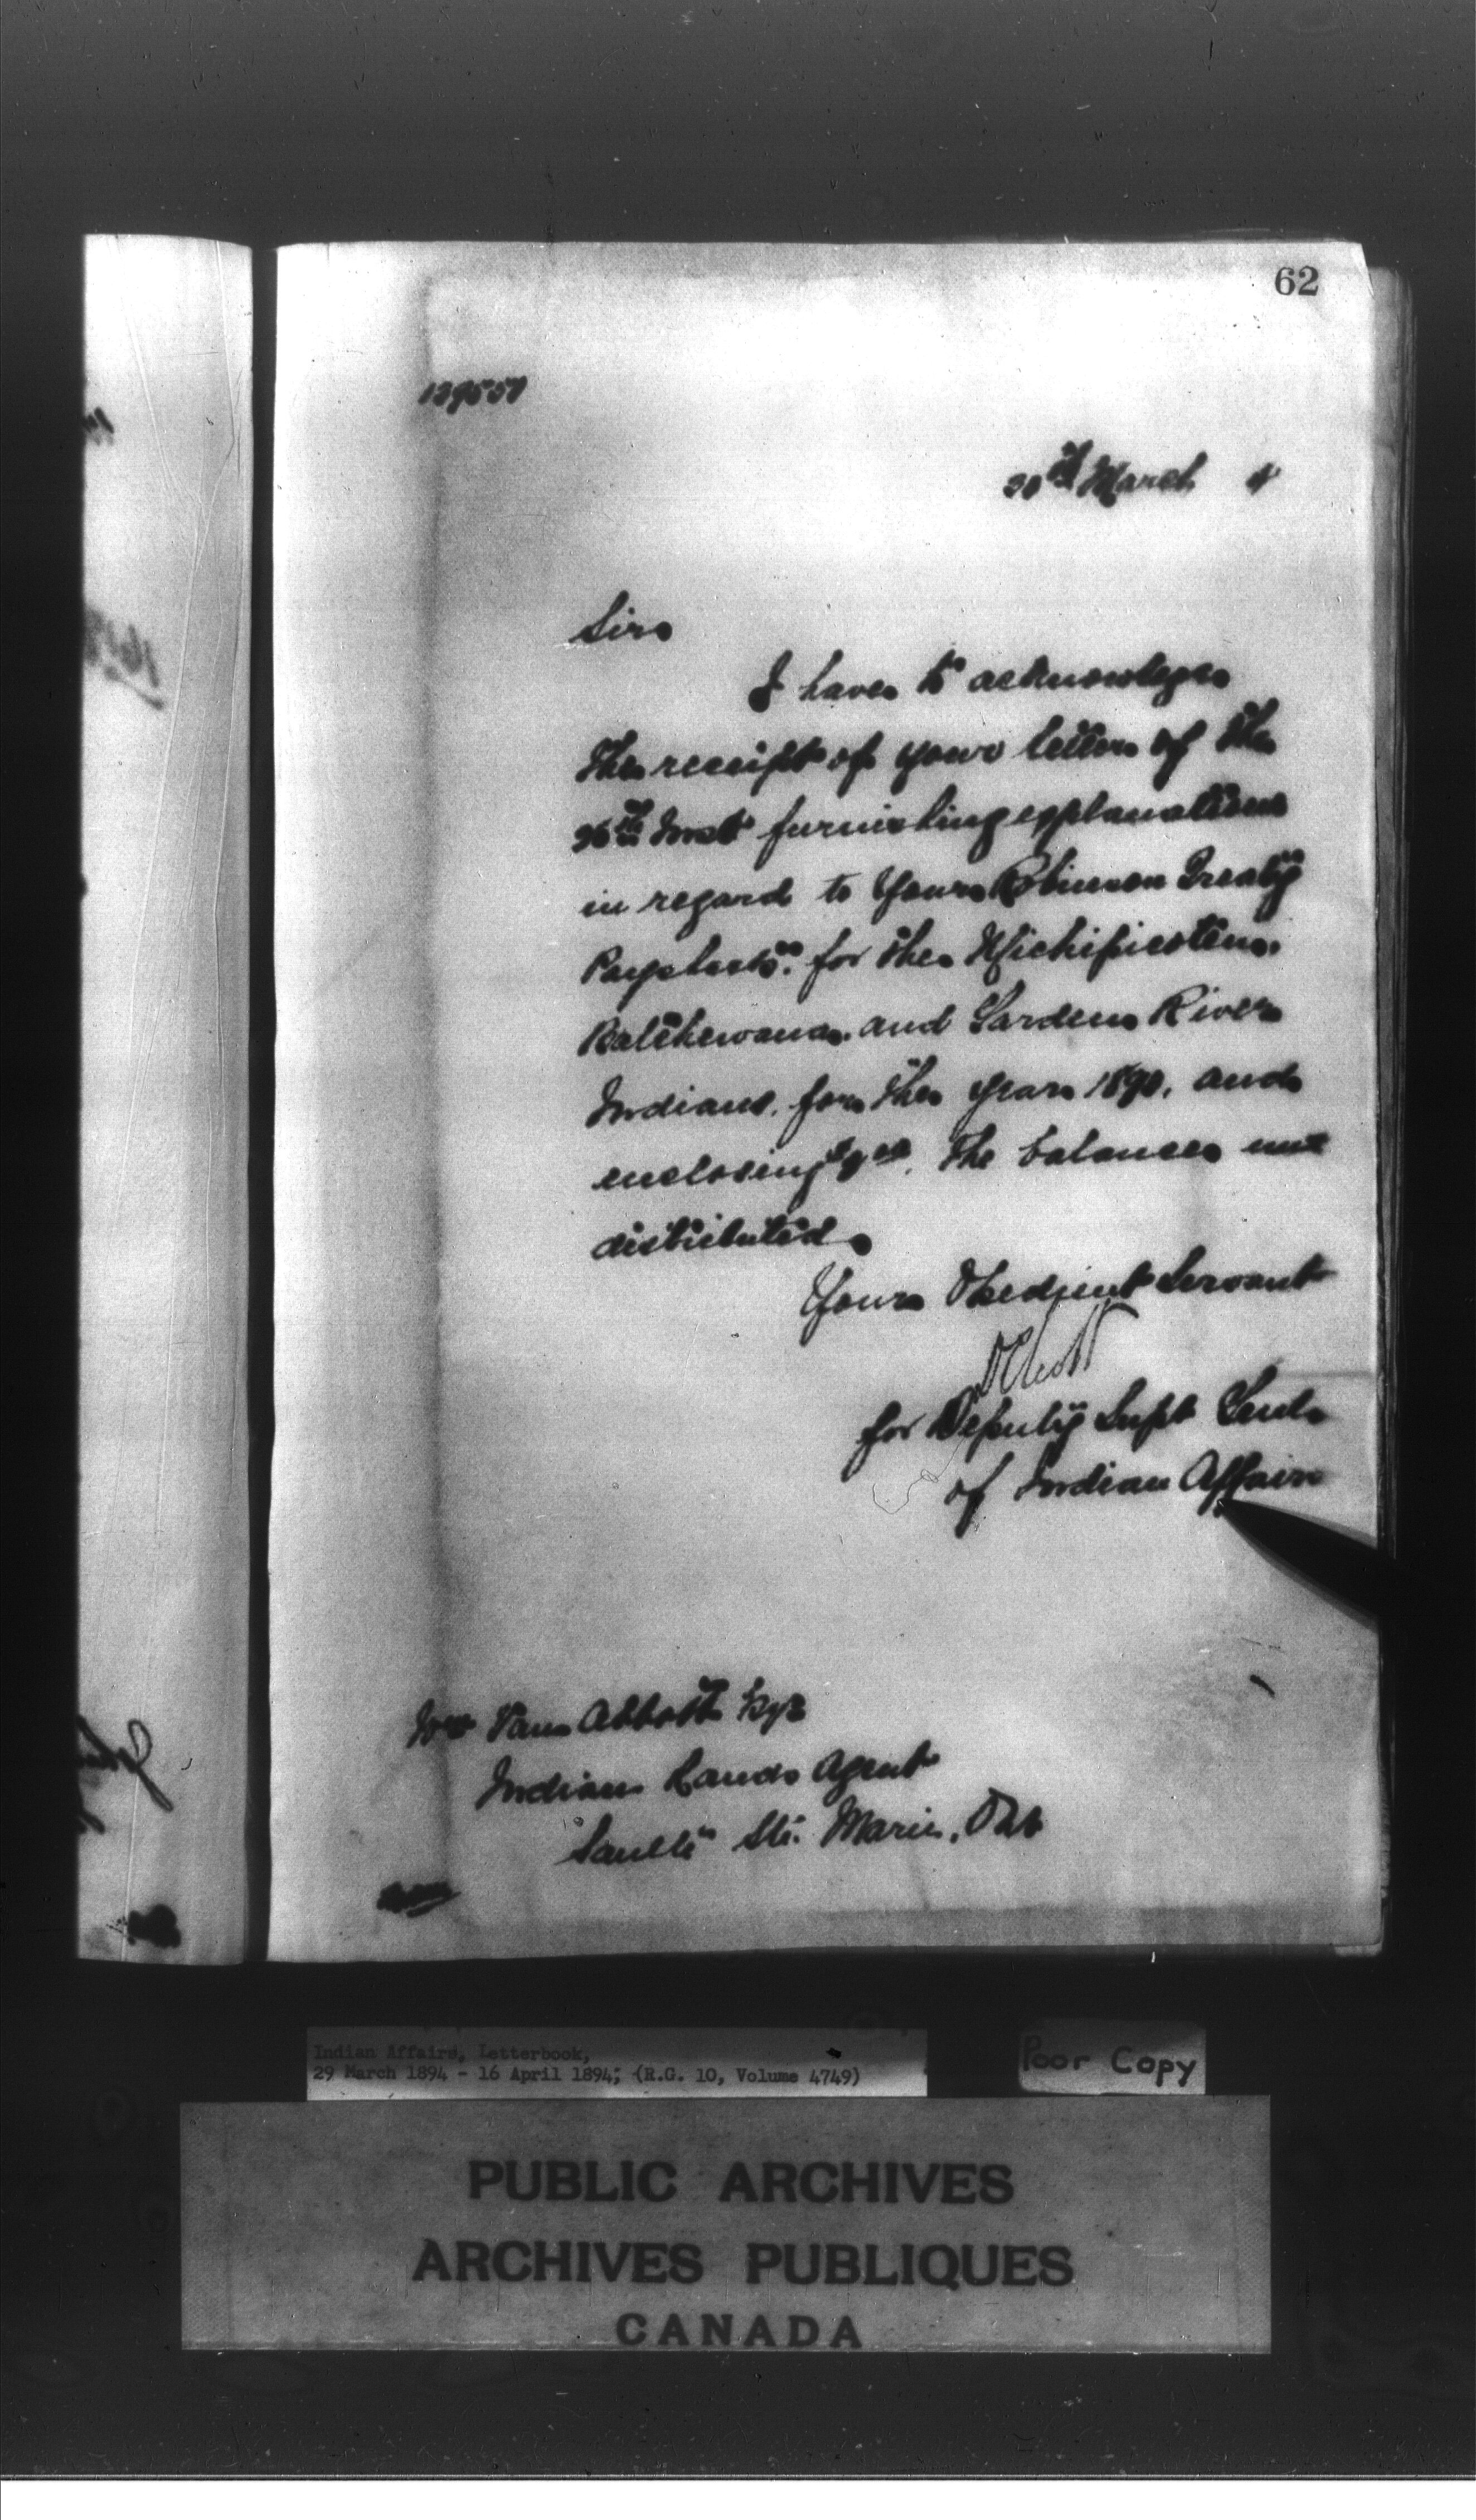 62
30th March 4
Sir
I have to acknowledge
the receipt of your letter of the
26th Inst furnishing explanations
in regard to your Robinson Treaty
Paylists. for the Michipicoten.
Batchewana. and Garden River
Indians. for the year 1890, and
enclosing The balances un
distributed
Your Obedient Servant
for Deputy Supt Genl.
of Indian Affairs
Wm Van Abbott Esqr
Indian Lands Agent
Sault Ste. Marie, Ont
Indian Affairs, Letterbook,
29 March 1894 - 16 April 1894; (R.G. 10, Volume 4749)
Poor Copy
PUBLIC ARCHIVES
ARCHIVES PUBLIQUES
CANADA